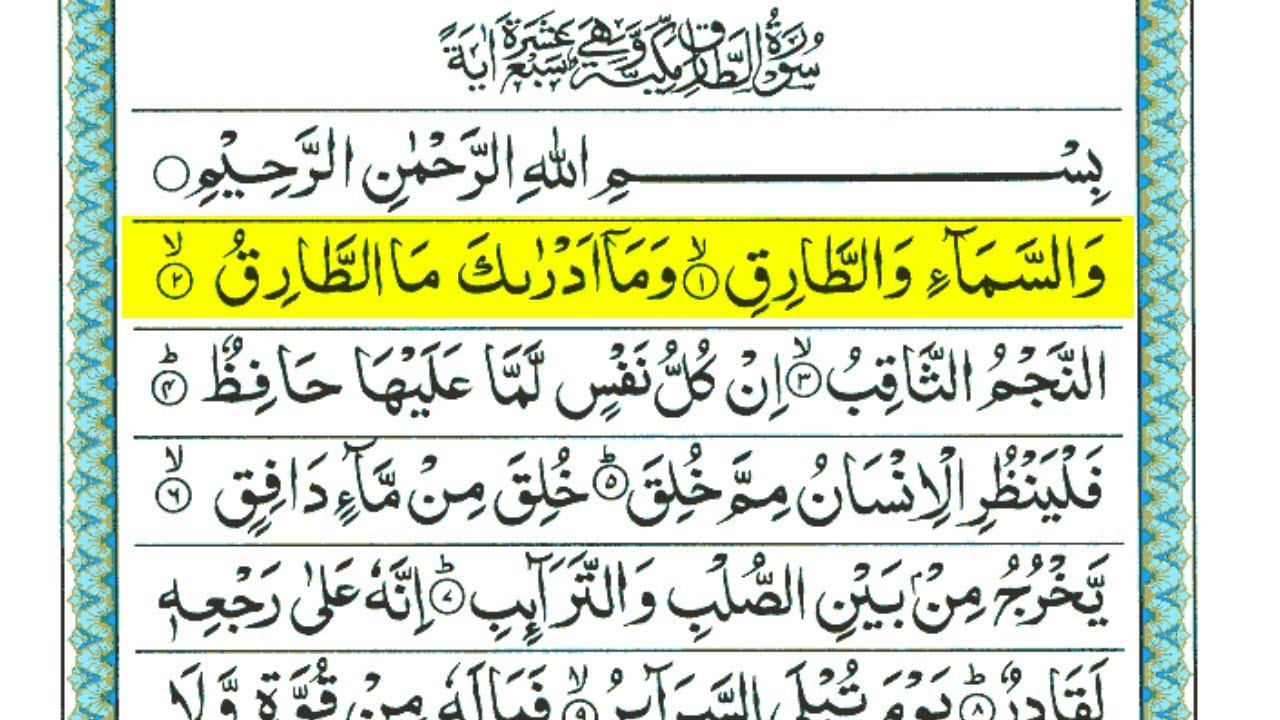 سُوْرَةُ الطَّارِقِ مَكِّيَّةٌ وَّهِيَ سَبْعَ عَشْرَةَ اٰيَةً
بِسْمِ اللهِ الرَّحْمٰنِ الرَّحِيْمِ ○
وَالسَّمَآءِ وَالطَّارِقِ ۙ﴿۱﴾ وَمَآ اَدْرٰىكَ مَا الطَّارِقُ ۙ﴿۲﴾
النَّجْمُ الثَّاقِبُ ۙ﴿۳﴾ اِنْ كُلُّ نَفْسٍ لَّمَّا عَلَيْهَا حَافِظٌ ؕ﴿۴﴾
فَلْيَنْظُرِ الْاِنْسَانُ مِمَّ خُلِقَ ؕ﴿۵﴾ خُلِقَ مِنْ مَّآءٍ دَافِقٍ ۙ﴿۶﴾
يَّخْرُجُ مِنْۢ بَيْنِ الصُّلْبِ وَالتَّرَآىِٕبِ ؕ﴿۷﴾ اِنَّهٗ عَلٰى رَجْعِهٖ
لَقَادِرٌ ؕ﴿۸﴾ يَوْمَ تُبْلَى السَّرَآىِٕرُ ۙ﴿۹﴾ فَمَا لَهٗ مِنْ قُوَّةٍ وَّلَا